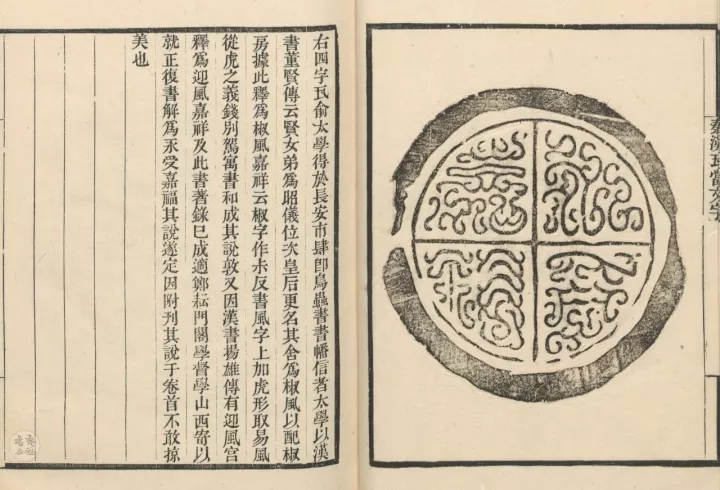 秦漢瓦當文字
右四字瓦俞太學得於長安市肆卽鳥蟲書書幡信者太學以漢
書董賢傳云賢女弟爲昭儀位次皇后更名其舍爲椒風以配椒
房據此釋爲椒風嘉祥云椒字作尗反書風字上加虎形取易風
從虎之義錢別駕寓書和成其說敦又因漢書揚雄傳有迎風宮
釋爲迎風嘉祥及此書著錄已成適鄭耘門閣學督學山西寄以
就正復書解爲永受嘉福其說遂定因附刊其說于卷首不敢掠
美也